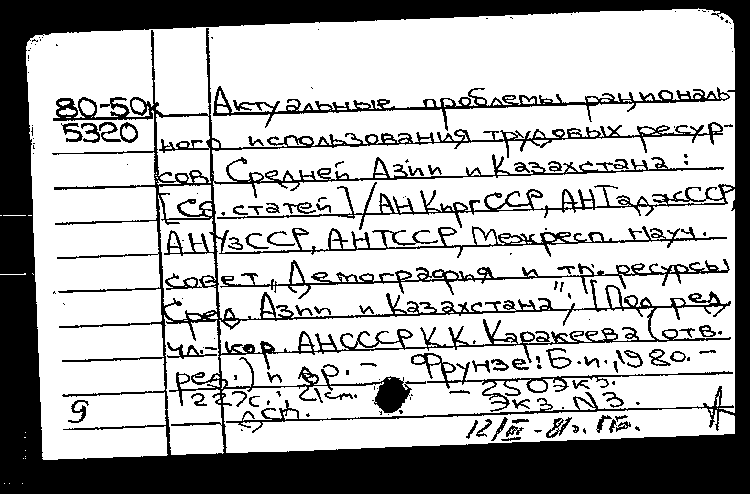 80-50к Актуальные проблемы рациональ-
5320 ного использования трудовых ресур-
сов Средней Азии и Казахстана:
[Сб. статей] / АН КиргССР, АН ТаджССР,
АН УзССР, АН ТССР, Межресп. науч.
совет „Демография и тр. ресурсы
Сред. Азии и Казахстана"; [Под ред.
чл.-кор. АН СССР К.К. Каракеева (отв.
ред.) и др. - Фрунзе: Б.и., 1980. -
227с.; 21см. - 250 экз.
9 Экз. N3.
12/III - 81г.